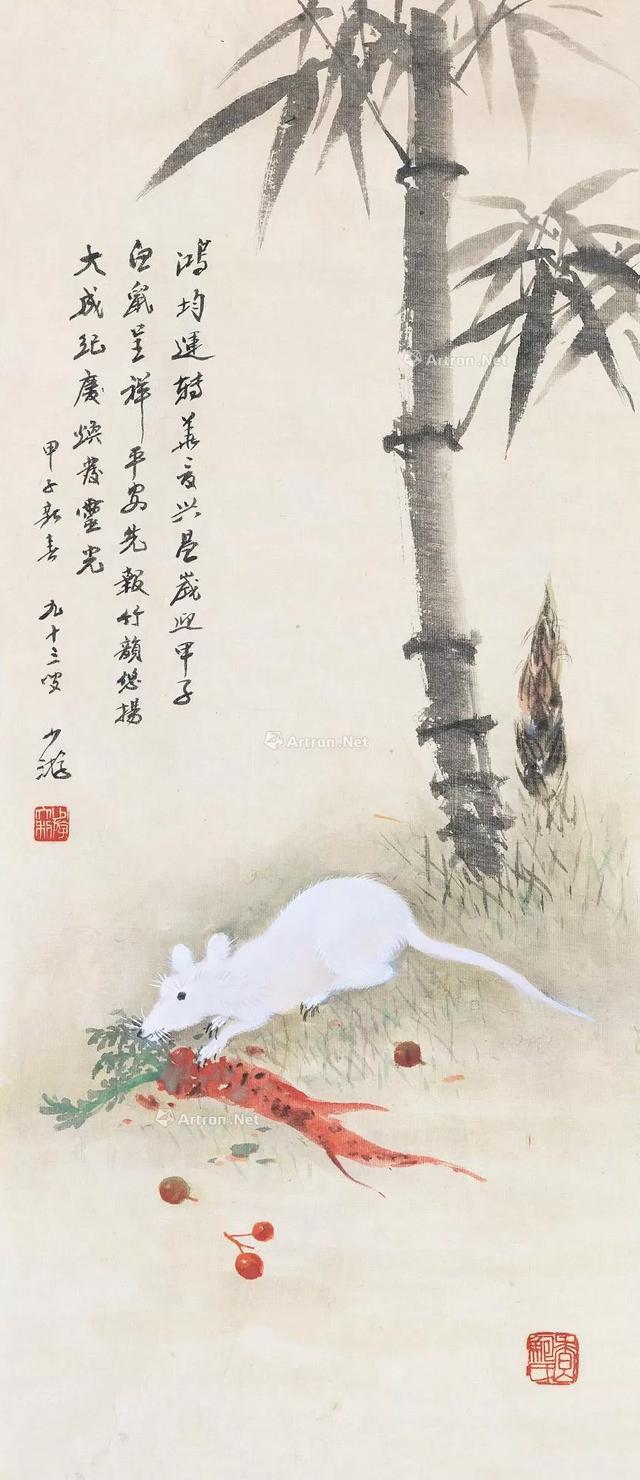 鴻均運轉華夏兴昌歲迎甲子
白鼠呈祥平安先報竹韻悠揚
大成紀慶煥發靈光
甲子新春 九十三叟 少游
Artron.Net
Artron.Net
Artron.Net